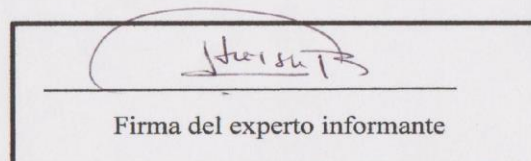 Firma del experto informante